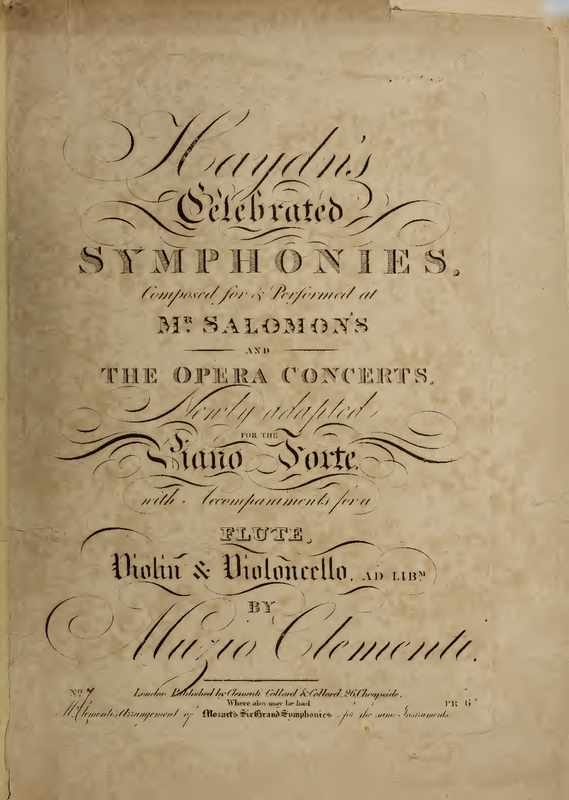 Haydn's
Celebrated
SYMPHONIES.
Composed for & Performed at
MR. SALOMON'S
AND
THE OPERA CONCERTS.
Newly adapted
FOR THE
Piano Forte.
with Accompaniments for a
FLUTE,
Violin & Violoncello, AD LIBM
BY
Muzio Clementi.
London Published by Clementi Collard & Collard, 26, Cheapside.
Where also may be had
No. 7 PR 6s
M. Clementi's Arrangement of Mozart's Six Grand Symphonies for the same Instruments